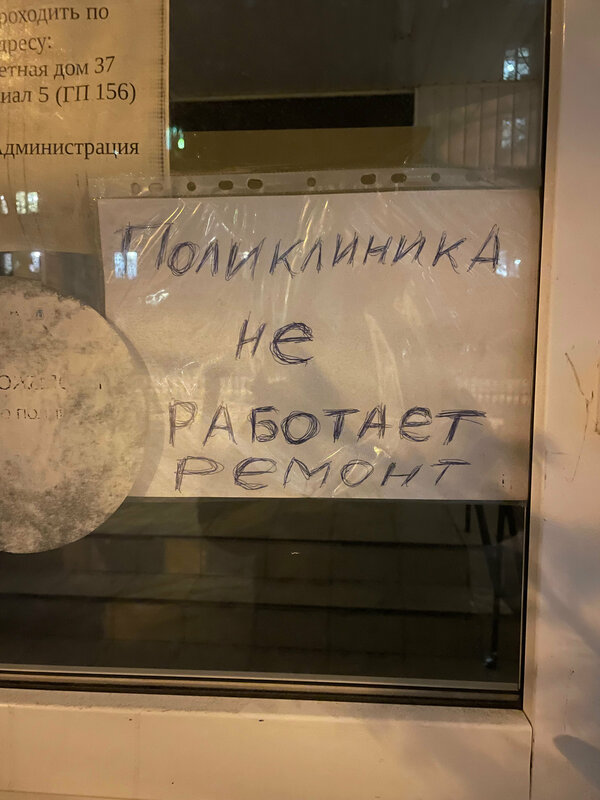 роходить по
дресу:
етная дом 37
иал 5 (ГП 156)
Администрация
Поликлиника
не
работает
ремонт